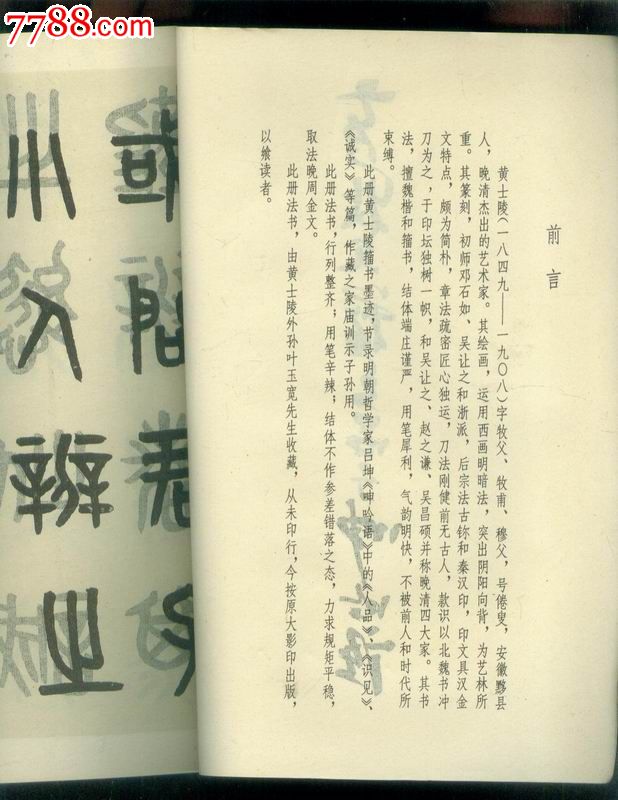 7788.com
前言
黄士陵(一八四九——一九〇八)字牧父、牧甫、穆父,号倦叟,安徽黟县
人,晚清杰出的艺术家。其绘画,运用西画明暗法,突出阴阳向背,为艺林所
重。其篆刻,初师邓石如、吴让之和浙派,后宗法古鉨和秦汉印,印文具汉金
文特点,颇为简朴,章法疏密匠心独运,刀法刚健前无古人,款识以北魏书冲
刀为之,于印坛独树一帜,和吴让之、赵之谦、吴昌硕并称晚清四大家。其书
法,擅魏楷和籀书,结体端庄谨严,用笔犀利,气韵明快,不被前人和时代所
束缚。
此册黄士陵籀书墨迹,节录明朝哲学家吕坤《呻吟语》中的《人品》、《识见》、
《诚实》等篇,作藏之家庙训示子孙用。
此册法书,行列整齐;用笔辛辣;结体不作参差错落之态,力求规矩平稳,
取法晚周金文。
此册法书,由黄士陵外孙叶玉宽先生收藏,从未印行,今按原大影印出版,
以飨读者。
或问君
小人辨之